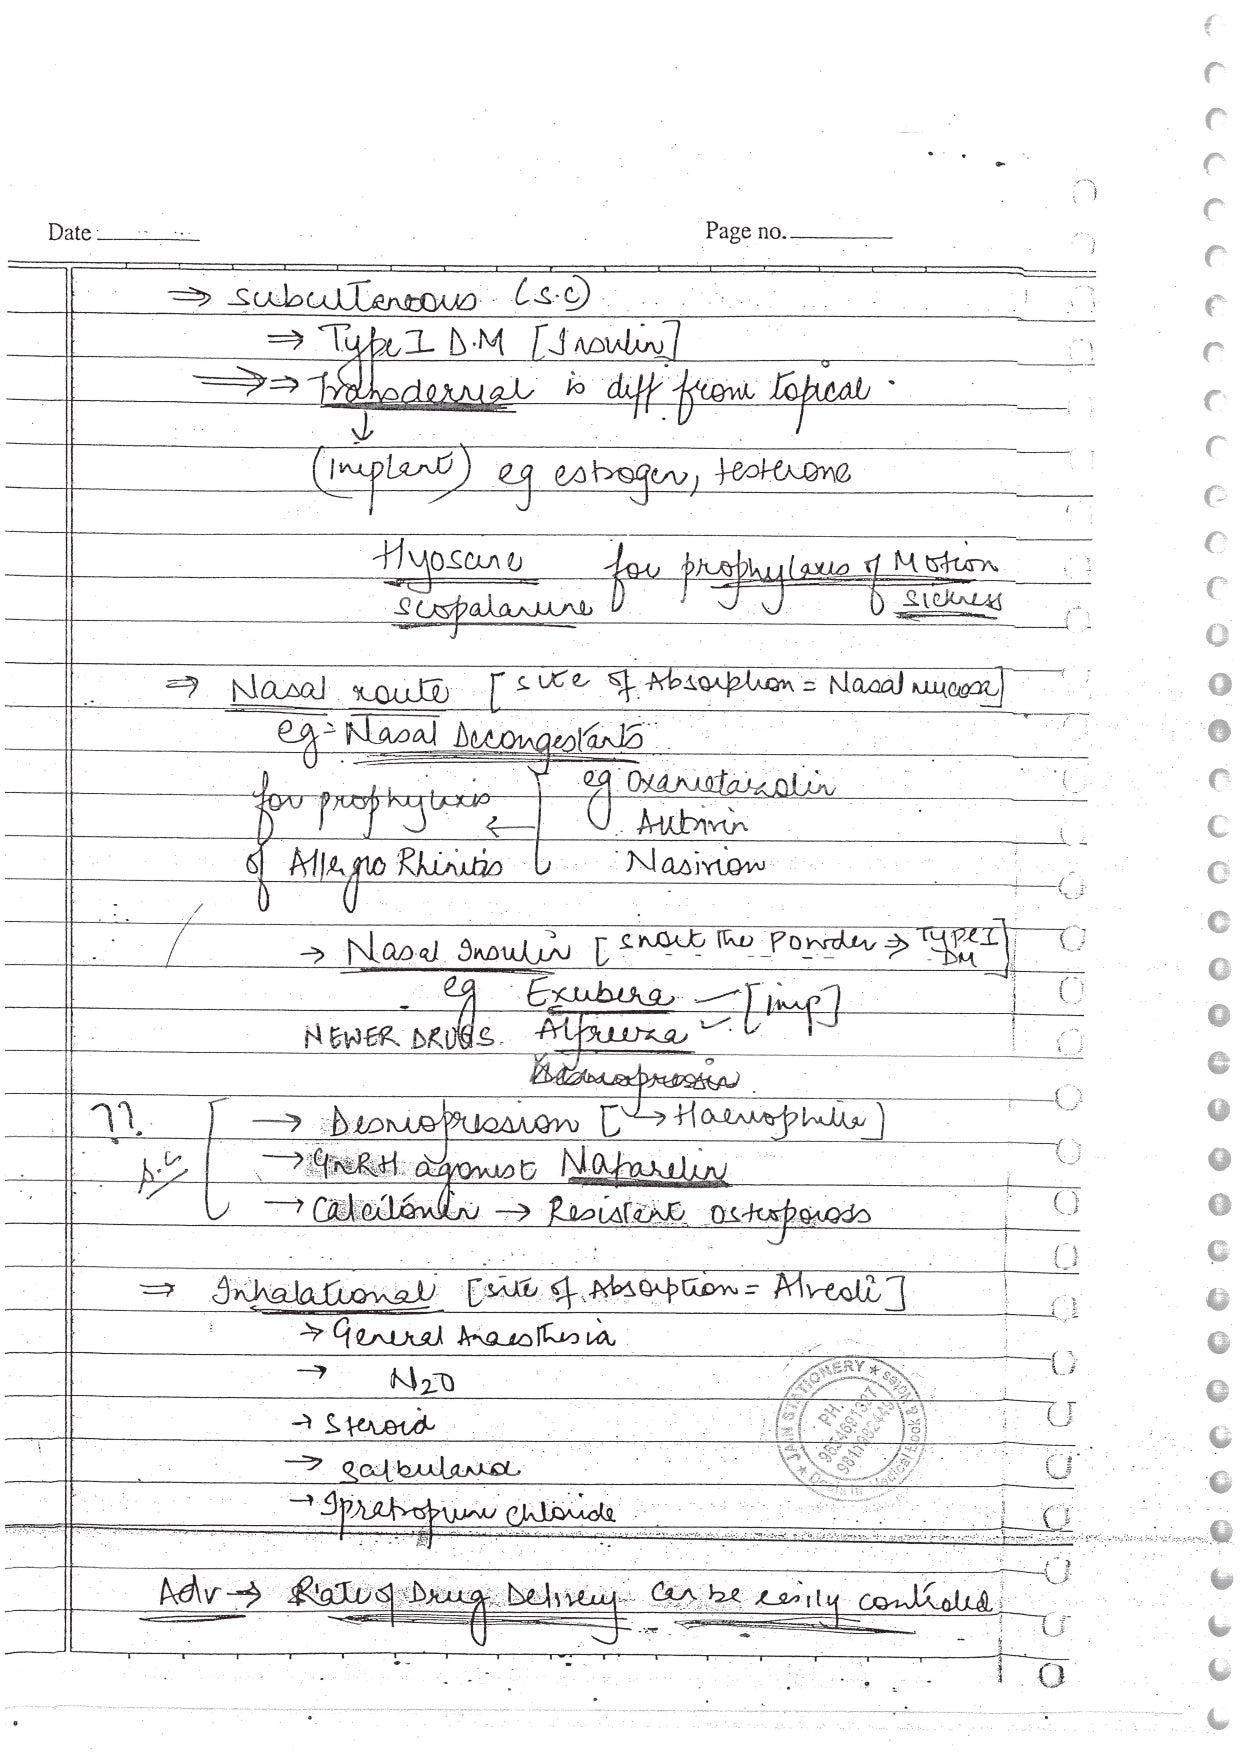 Date
Page no.
⇒ subcultaneous (s.c)
⇒ Type I D.M [Insulin]
⇒⇒ Transdermal is diff from topical.
↓
(implant) eg estrogen, testerone
Hyoscine for prophylaxis of Motion
scopalamine sickness
⇒ Nasal route [site of Absorption = Nasal mucosa]
eg = Nasal Decongestants
for prophylaxis ← eg Oxametaizolin
Autrivin
of Allergic Rhinitis Nasivion
→ Nasal Insulin [snort the Powder ⇒ Type I DM]
eg Exubera - [imp]
NEWER DRUGS. Alfreeza
??
→ Desmopression [→ Haemophilia]
→ GnRH agonist Nafarelin
→ Calcitonin → Resistent osteoporosis
⇒ Inhalational [site of Absorption = Alveoli]
→ General Anaesthesia
→ N2O
→ Steroid
→ salbulamol
→ Ipratropium chloride
JAIN STATIONERY ★
PH.
Adv → Rate of Drug Delivery can be easily controlled